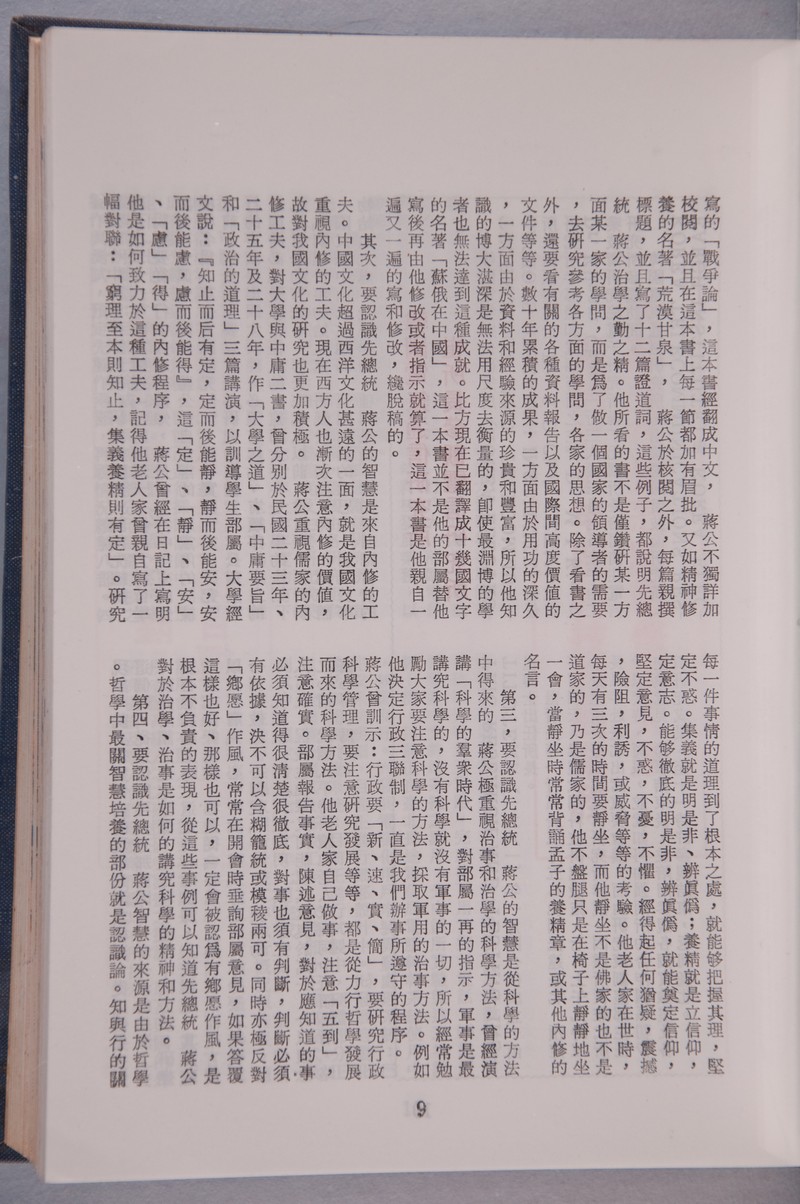 寫的「戰爭論」，這本書經翻成中文，　蔣公不獨詳加
校閱，並且在這本書上每一節都加有眉批。又如精神修
養的名著「荒漠甘泉」，　蔣公於核閱之外，每篇親撰
標題，並且寫了十二篇證道詞，這些例子，都說明先總
統　蔣公治學之勤之精。他所看的書不是僅鑽研某一方
面某一家的學問，而是爲了做一個國家的領導者的需要
，去研究參考各方面的學問，各家的思想。除了看書之
外，還要看有關的各種資料報告以及國際間高度價值的
文件等等。數十年累積的成果，一方面由於用功的深久
，一方面由於資料和經驗來源的珍貴和豐富，所以他知
識的博大湛深是無法用尺度去衡量的，卽使最淵博的學
者也無法達到這種成就。比方現在已翻譯成十幾國文字
的名著「蘇俄在中國」，這一本書並不是他的部屬替他
寫後再由他修改或者指示就算了，這一本書是他親自一
遍又一遍的寫和修改，纔脫稿的。
　　其次，要認識先總統　蔣公的智慧是來自內修的工
夫。中國文化超過西洋文化甚遠的一面，就是我國文化
重視內修的工夫。現在西方人也漸次注意內修的價值，
故對我國文化的研究也更加積極。　蔣公重視儒家的內
修工夫，對大學與中庸二書，曾分別於民國二十三年、
二十五年及二十八年，作「大學之道」、「中庸要旨」
和「政治的道理」三篇講演，以訓導學生部屬。大學經
文說：『知止而后有定，定而後能靜，靜而後能安，安
而後能慮，慮而後能得』，這「定」、「靜」、「安」
、「慮」「得」的內修程序，　蔣公曾經在日記上寫明
他是如何致力於這種工夫，記得他老人家曾親自寫了一
幅對聯：「窮理至本則知止，集義養精則有定」。研究
每一件事情的道理到了根本之處，就能够把握其理，堅
定不惑。集義就是明是非、辨眞僞；養精就是立信仰，
定意志。能够徹底的明是非，辨眞僞，就能奠定信仰，
堅定意見，不惑，不憂，不懼。經得起任何猶疑，震撼
，險阻，利誘，或威脅等等的考驗。他老人家在世時，
每天有三次的時間要靜坐，而他靜坐不是佛家的也不是
道家的，乃是儒家的，他不盤腿只是在椅子上靜靜地坐
一會，當靜坐時常常背誦孟子的養精章，或其他內修的
名言。
　　第三，要認識先總統　蔣公的智慧是從科學的方法
中得來的　蔣公極重視治事和治學的科學方法，曾經演
講「科學的羣衆時代」，對部屬一再的指示，軍事是最
講究科學的，沒有科學就沒有軍事的一切，所以經常勉
勵大家要注意科學的方法，採取軍用的治事方法。例如
他決定行政三聯制，一直是我們辦事所遵守的程序。
蔣公曾訓示：行政要「新、速、實、簡」，要研究行政
科學管理，要注意研究發展等等，都是從力行哲學發展
而來的科學方法。他老人家自己做事，注意「五到」，
注意確實。部屬報告事實，陳述意見，對於應知道的事
必須知道得很清楚很徹底，對事也須有判斷，判斷必須
有依據，決不可以含糊籠統或模稜兩可。同時亦極反對
「鄉愿」作風，常常在開會時垂詢部屬意見，如果答覆
這樣也好、那樣也可以，一定會被認爲有鄉愿作風，是
根本不負責的表現，從這些事例可以知道先總統　蔣公
對於治學、治事是如何的講究科學的精神和方法。
　　第四、要認識先總統　蔣公智慧的來源是由於哲學
。哲學中最關智慧培養的部份就是認識論。知與行的關
9